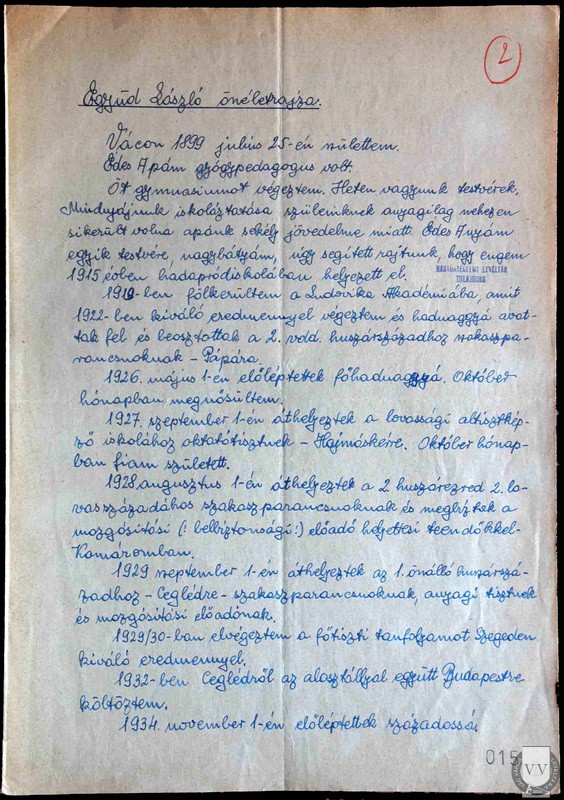 2
Együd László önéletrajza.
Vácon 1899 július 25-én születtem.
Édes Apám gyógypedagogus volt.
Öt gymnasiumot végeztem. Heten vagyunk testvérek.
Mindnyájunk iskoláztatása szüleinknek anyagilag nehezen
sikerült volna apánk sekély jövedelme miatt. Édes Anyám
egyik testvére, nagybátyám, úgy segített rajtunk, hogy engem
1915 évben hadapródiskolában helyezett el.
HADTÖRTÉNELMI LEVÉLTÁR
TULAJDONA
1919-ben fölkerültem a Ludovika Akadémiába, amit
1922-ben kiváló eredmennyel végeztem és hadnaggyá avat-
tak fel és beosztottak a 2. huszárszázadhoz szakaszpa-
rancsnoknak - Pápára.
1926. május 1-én előléptettek főhadnaggyá. Október
hónapban megnősültem.
1927. szeptember 1-én áthelyeztek a lovassági altisztkép-
ző iskolához oktatótisztnek - Hajmáskérre. Október hónap-
ban fiam született.
1928. augusztus 1-én áthelyeztek a 2. huszárezred 2. lo-
vasszázadához szakaszparancsnoknak és megbíztek a
mozgósítási (! belbiztonsági!) előadó helyettesi teendőkkel-
Komáromban.
1929 szeptember 1-én áthelyeztek az 1. önálló huszárszá-
zadhoz - Ceglédre - szakaszparancsnoknak, anyagi tisztnek
és mozgósítási előadónak.
1929/30-ban elvégeztem a főtiszti tanfolyamot Szegeden
kiváló eredmennyel.
1932-ben Ceglédről az alosztállyal együtt Budapestre
költöztem.
1934. november 1-én előléptettek századossá.
015
VV